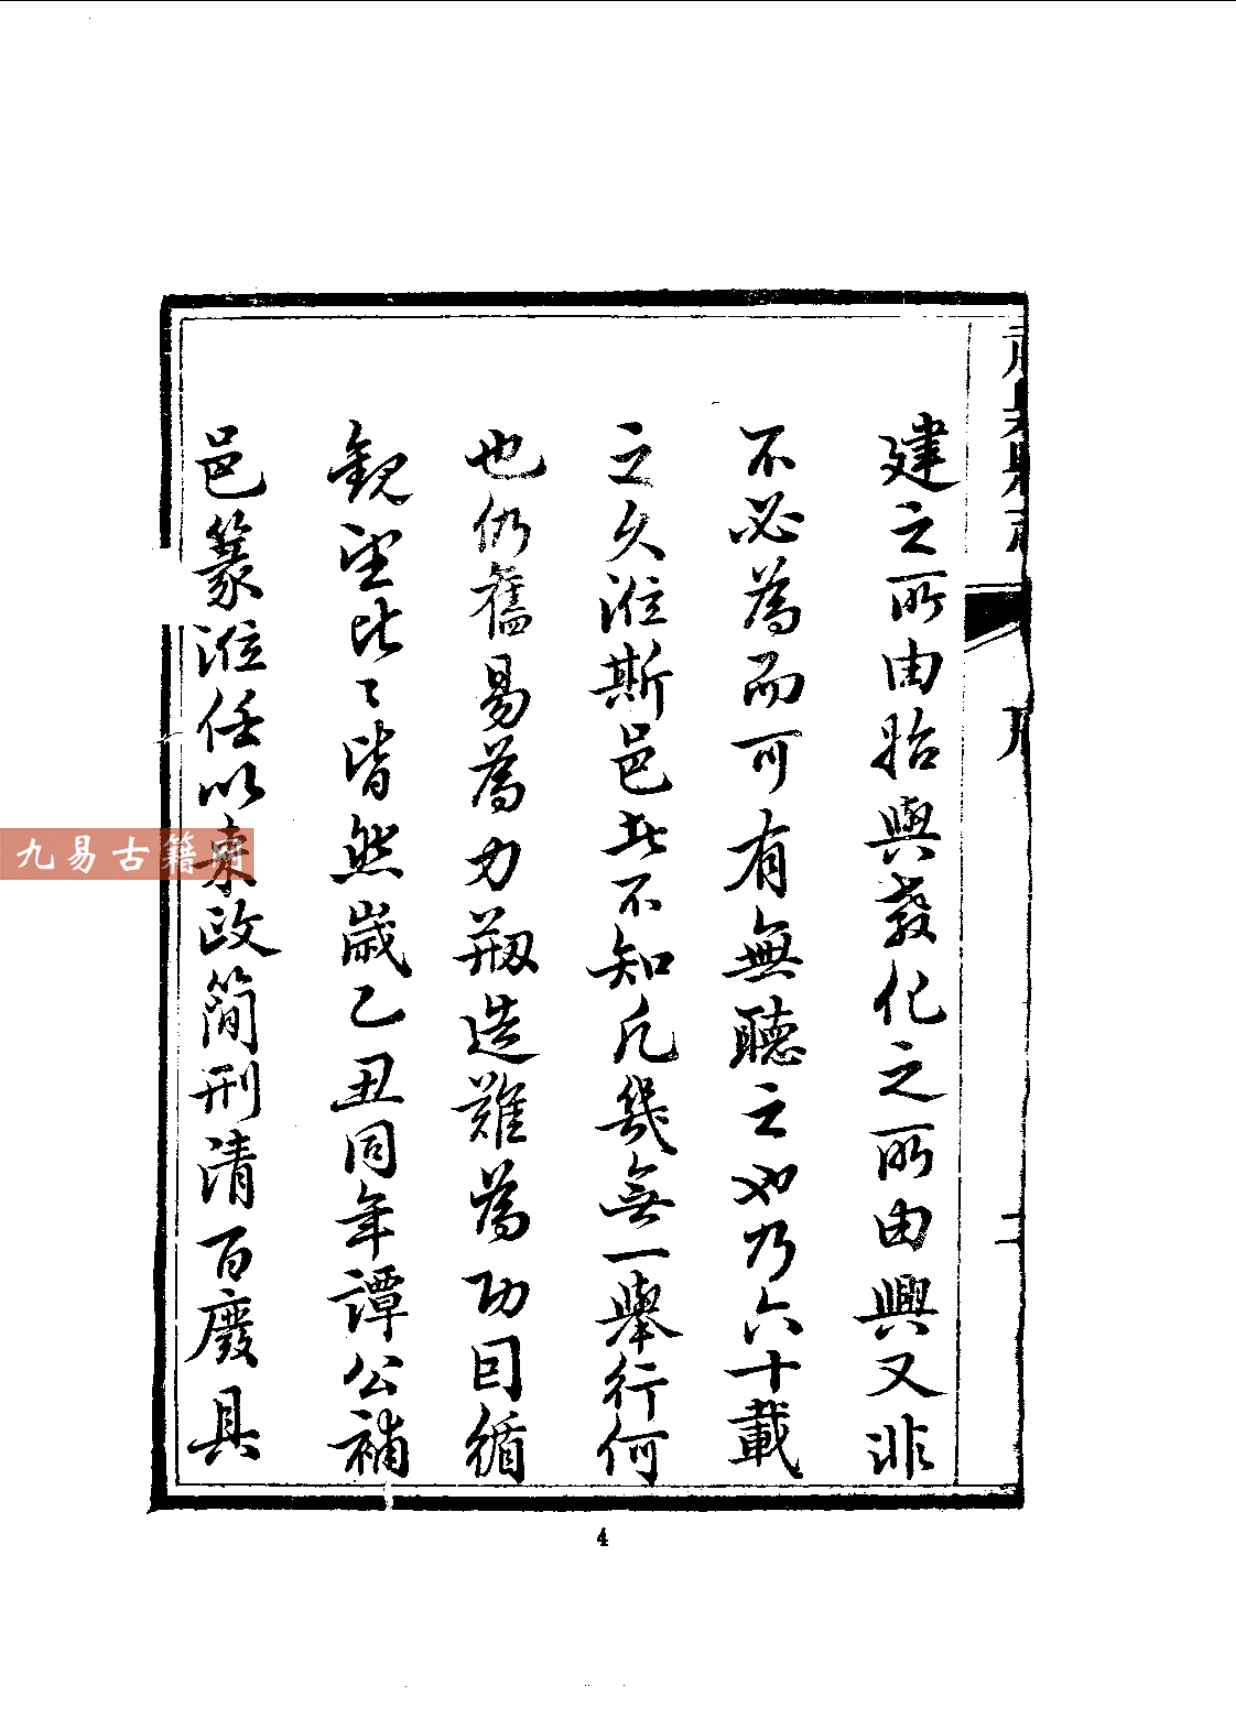 序
二
建之所由始與教化之所由興又非
不必為而可有無聽之也乃六十載
之久涖斯邑者不知凡幾無一舉行何
也仍舊易為力剏造難為功因循
觀望比〻皆然歲乙丑同年譚公補
邑篆涖任以来政簡刑清百廢具
4
九易古籍網